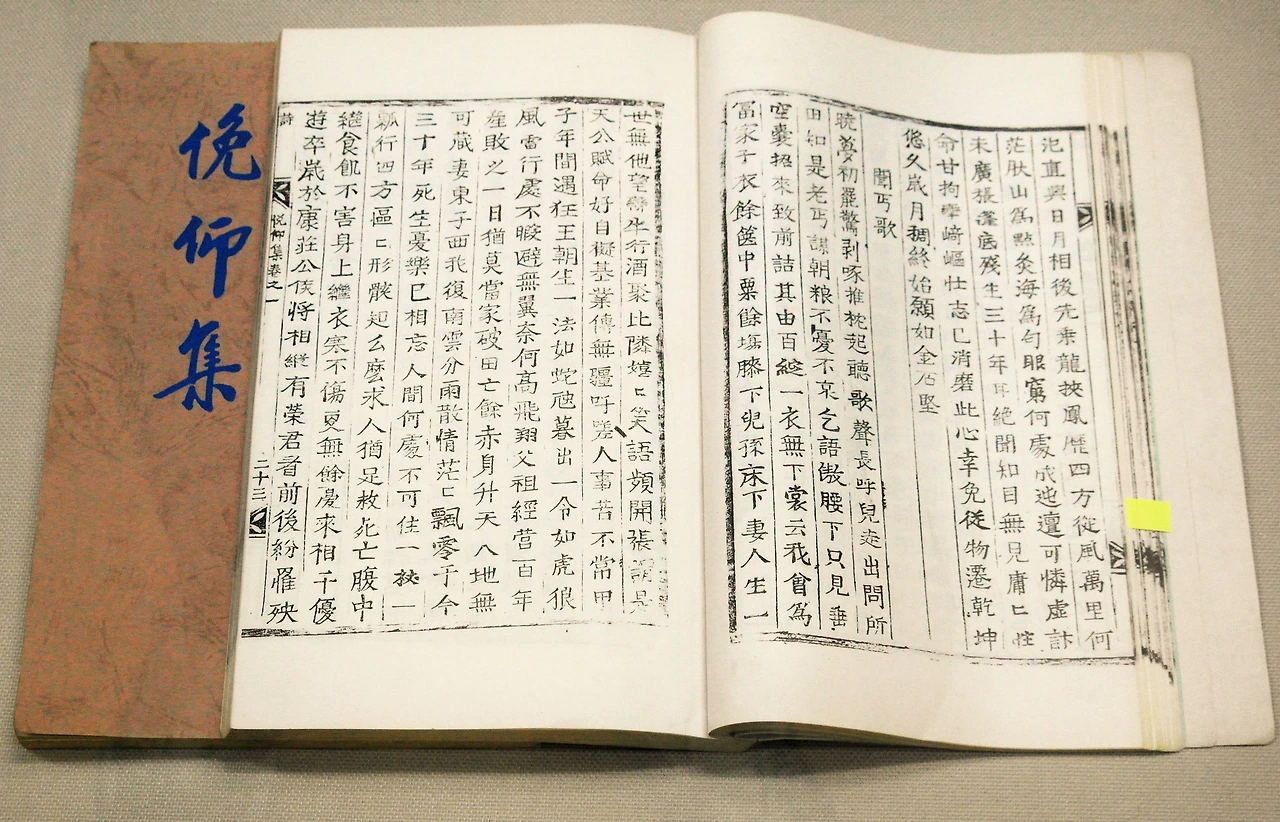 直與日月相後先乘龍挾鳳歷四方從風萬里何
茫肰山爲點灸海爲匀眼窮何處成迍邅可憐虛訃
未廣張蓬底殘生三十年耳絶聞知目無見庸〻性
命甘拘牽崎嶇壯志已消磨此心幸免從物遷乾坤
悠久歲月稠終始願如金石堅
聞丐歌
曉夢初罷驚剥啄推枕起聽歌聲長呼兒走出問所
由知是老丐謀朝粮不憂不哀乞語傲腰下只見垂
空囊招來致前詰其由百綻一衣無下裳云我曾爲
富家子衣餘篋中粟餘塲膝下兒孫床下妻人生一
世無他望牛行酒聚比隣嬉〻笑語頻開張謂是
天公賦命好自擬基業傳無疆吁嗟人事苦不常甲
子年間遇狂王朝生一法如蛇虺暮出一令如虎狼
風雷行處不暇避無翼奈何高飛翔父祖經营百年
産敗之一日猶莫當家破田亡餘赤身升天入地無
可藏妻東子西我復南雲分雨散情茫〻飄零于今
三十年死生憂樂已相忘人間何處不可住一
瓢行四方區〻形骸知幺麽求人猶足救死亡腹中
繼食飢不害身上繼衣寒不傷更無餘慮來相干優
遊卒歲於康莊公侯將相縱有榮君看前後紛罹殃
詩
俛仰集卷之一
二十三
俛仰集